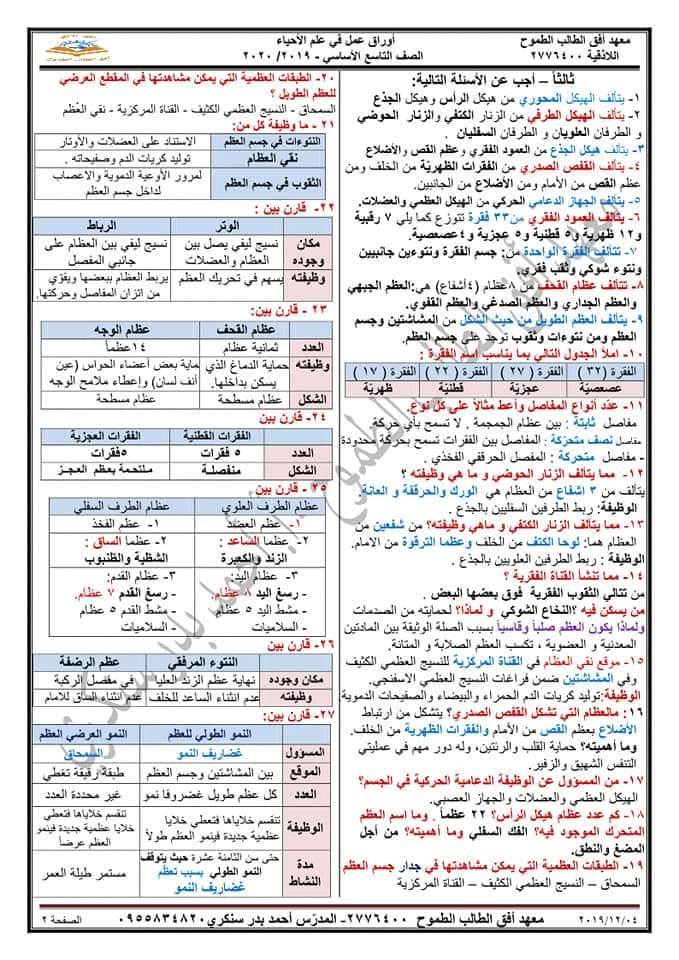 معهد أفق الطالب الطموح
اللاذقية ٢٧٧٦٤٠٠
أوراق عمل في علم الأحياء
الصف التاسع الأساسي - ٢٠١٩ / ٢٠٢٠
ثالثاً – أجب عن الأسئلة التالية:
١- يتألف الهيكل المحوري من هيكل الرأس وهيكل الجذع
٢- يتألف الهيكل الطرفي من الزنار الكتفي و الزنار الحوضي
و الطرفان العلويان و الطرفان السفليان .
٣- يتألف هيكل الجذع من العمود الفقري و عظم القص والأضلاع
٤- يتألف القفص الصدري من الفقرات الظهرية من الخلف ومن
عظم القص من الأمام ومن الأضلاع من الجانبين.
٥- يتألف الجهاز الدعامي الحركي من الهيكل العظمي والعضلات.
٦- يتألف العمود الفقري من ٣٣ فقرة تتوزع كما يلي ٧ رقبية
و١٢ ظهرية و٥ قطنية و٥ عجزية و٤عصعصية.
٧- تتألف الفقرة الواحدة من: جسم الفقرة ونتوءين جانبيين
ونتوء شوكي وثقب فقري.
٨- تتألف عظام القحف من ٨عظام (٤أشفاع) هي:العظم الجبهي
والعظم الجداري والعظم الصدغي والعظم القفوي.
٩- يتألف العظم الطويل من حيث الشكل من المشاشتين وجسم
العظم ومن نتوءات وثقوب توجد على جسم العظم.
١٠- املأ الجدول التالي بما يناسب اسم الفقرة :
الفقرة ( ٣٢ ) الفقرة ( ٢٧ ) الفقرة ( ٢٢ ) الفقرة ( ١٧ )
عصعصيّة عجزيّة قطنيّة ظهريّة
١١- عدّد أنواع المفاصل وأعط مثالاً على كل نوع.
مفاصل ثابتة : بين عظام الجمجمة . لا تسمح بأي حركة.
مفاصل نصف متحركة : المفاصل بين الفقرات تسمح بحركة محدودة
مفاصل - متحركة : المفصل الحرقفي الفخذي .
١٢- مما يتألف الزنار الحوضي و ما هي وظيفته ؟
يتألف من ٣ اشفاع من العظام هي الورك والحرقفة و العانة.
الوظيفة: ربط الطرفين السفليين بالجذع .
١٣- مما يتألف الزنار الكتفي و ماهي وظيفته؟ من شفعين من
العظام هما: لوحا الكتف من الخلف وعظما الترقوة من الامام.
الوظيفة : ربط الطرفين العلويين بالجذع .
١٤- مما تنشأ القناة الفقرية ؟
من تتالي الثقوب الفقرية فوق بعضها البعض .
من يسكن فيه ؟النخاع الشوكي و لماذا؟ لحمايته من الصدمات
ولماذا يكون العظم صلباً وقاسياً بسبب الصلة الوثيقة بين المادتين
المعدنية و العضوية ، تكسب العظم الصلابة و المتانة.
١٥- موقع نقي العظام في القناة المركزية للنسيج العظمي الكثيف
وفي المشاشتين ضمن فراغات النسيج العظمي الاسفنجي.
الوظيفة:توليد كريات الدم الحمراء و البيضاء والصفيحات الدموية
١٦: مالعظام التي تشكل القفص الصدري؟ يتشكل من ارتباط
الأضلاع بعظم القص من الأمام والفقرات الظهرية من الخلف.
وما أهميته؟ حماية القلب والرئتين، وله دور مهم في عمليتي
التنفس الشهيق والزفير.
١٧- من المسؤول عن الوظيفة الدعامية الحركية في الجسم؟
الهيكل العظمي والعضلات والجهاز العصبي.
١٨- كم عدد عظام هيكل الرأس؟ ٢٢ عظماً . وما اسم العظم
المتحرك الموجود فيه؟ الفك السفلي وما أهميته؟ من أجل
المضغ والنطق.
١٩- الطبقات العظمية التي يمكن مشاهدتها في جدار جسم العظم
السمحاق – النسيج العظمي الكثيف – القناة المركزية
٢٠- الطبقات العظمية التي يمكن مشاهدتها في المقطع العرضي
للعظم الطويل ؟
السمحاق - النسيج العظمي الكثيف - القناة المركزية - نقي العظم
٢١- ما وظيفة كل من:
النتوءات في جسم العظم الاستناد على العضلات والأوتار
نقي العظام توليد كريات الدم وصفيحاته .
الثقوب في جسم العظم لمرور الأوعية الدموية والاعصاب
لداخل جسم العظم
٢٢- قارن بين :
الوتر الرباط
مكان وجوده نسيج ليفي يصل بين العظام والعضلات نسيج ليفي بين العظام على جانبي المفصل
وظيفته يسهم في تحريك العظم يربط العظام ببعضها ويقوّي من اتزان المفاصل وحركتها.
٢٣- قارن بين:
عظام القحف عظام الوجه
العدد ثمانية عظام ١٤عظماً
وظيفته حماية الدماغ الذي يسكن بداخلها. ماية بعض أعضاء الحواس (عين أنف لسان) وإعطاء ملامح الوجه
الشكل عظام مسطحة عظام مسطحة
٢٤- قارن بين
الفقرات القطنية الفقرات العجزية
العدد ٥ فقرات ٥فقرات
الشكل منفصلة ملتحمة بعظم العجز
٢٥- قارن بين
عظام الطرف العلوي عظام الطرف السفلي
١- عظم العضد ١- عظم الفخذ
٢- عظما الساعد : ٢- عظما الساق :
الزند والكعبرة الشظية والظنبوب
٣- عظام اليد: ٣- عظام القدم:
- رسغ اليد ٨ عظام. - رسغ القدم ٧ عظام.
- مشط اليد ٥ عظام - مشط القدم ٥ عظام
- السلاميات - السلاميات
٢٦- قارن بين
النتوء المرفقي عظم الرضفة
مكان وجوده نهاية عظم الزند العليا في مفصل الركبة
وظيفته عدم انثناء الساعد للخلف عدم انثناء الساق للامام
٢٧- قارن بين:
النمو الطولي للعظم النمو العرضي العظم
المسؤول غضاريف النمو السمحاق
الموقع بين المشاشتين وجسم العظم طبقة رقيقة تغطي
العدد كل عظم طويل غضروفا نمو غير محددة العدد
الوظيفة تنقسم خلاياها فتعطي خلايا عظمية جديدة فينمو العظم طولاً تنقسم خلاياها فتعطي خلايا عظمية جديدة فينمو العظم عرضاً
مدة النشاط حتى سن الثامنة عشرة حيث يتوقف النمو الطولي بسبب تعظم غضاريف النمو مستمر طيلة العمر
٢٠١٩/١٢/٠٤ معهد أفق الطالب الطموح ٢٧٧٦٤٠٠- المدرّس أحمد بدر سنكري/٠٩٥٥٨٣٤٨٢٠ الصفحة ٢